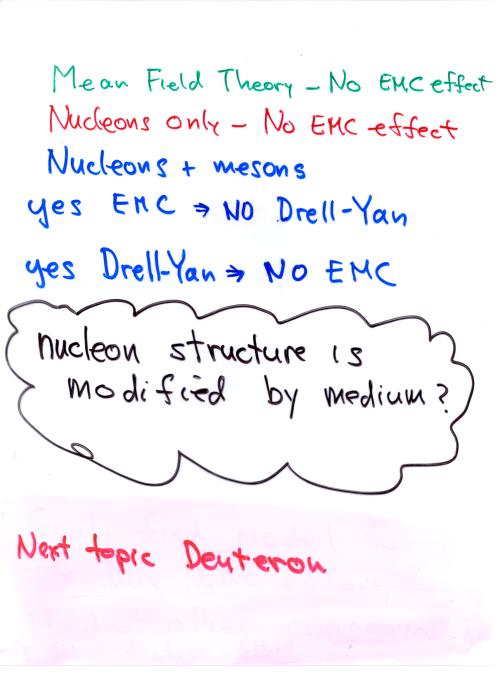 Mean Field Theory - No EMC effect
Nucleons only - No EMC effect
Nucleons + mesons
yes EMC ⇒ NO Drell-Yan
yes Drell-Yan ⇒ NO EMC
nucleon structure is
modified by medium?
Next topic Deuteron